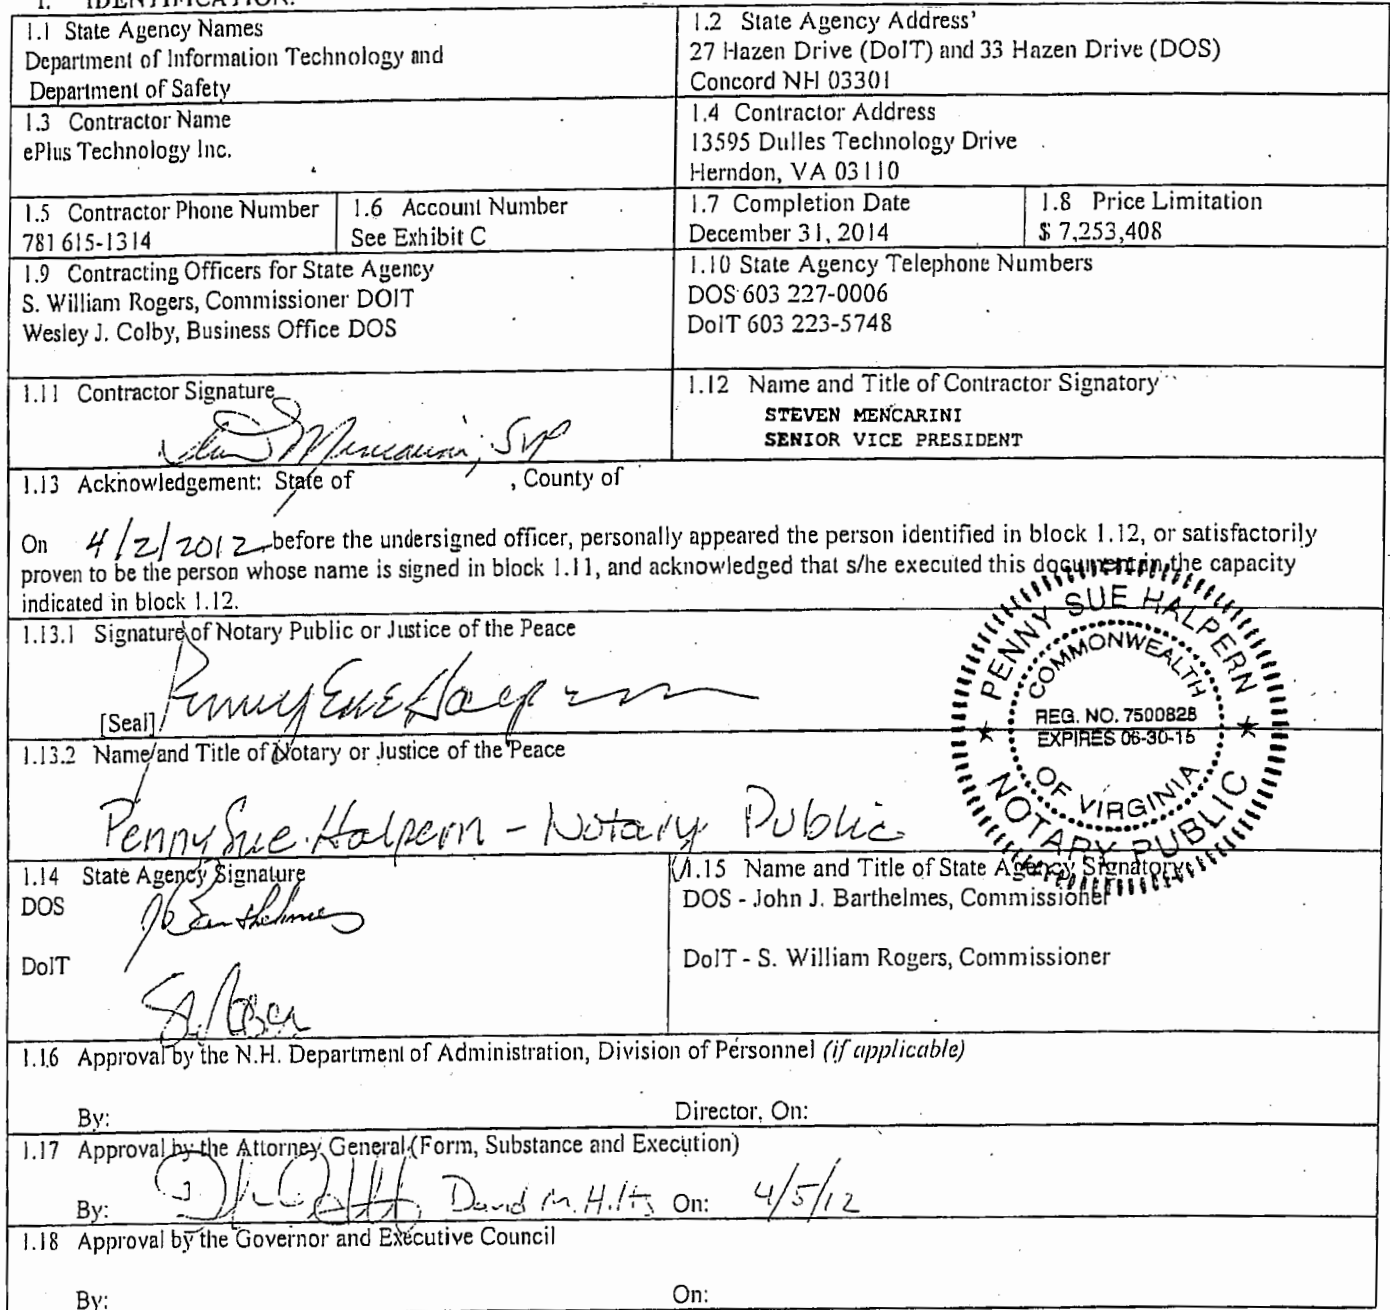 1. IDENTIFICATION.
1.1 State Agency Names
Department of Information Technology and
Department of Safety
1.2 State Agency Address'
27 Hazen Drive (DoIT) and 33 Hazen Drive (DOS)
Concord NH 03301
1.3 Contractor Name
ePlus Technology Inc.
1.4 Contractor Address
13595 Dulles Technology Drive
Herndon, VA 03110
1.5 Contractor Phone Number
781 615-1314
1.6 Account Number
See Exhibit C
1.7 Completion Date
December 31, 2014
1.8 Price Limitation
$ 7,253,408
1.9 Contracting Officers for State Agency
S. William Rogers, Commissioner DOIT
Wesley J. Colby, Business Office DOS
1.10 State Agency Telephone Numbers
DOS 603 227-0006
DoIT 603 223-5748
1.11 Contractor Signature
Mencarini, SVP
1.12 Name and Title of Contractor Signatory
STEVEN MENCARINI
SENIOR VICE PRESIDENT
1.13 Acknowledgement: State of , County of
On 4/2/2012 before the undersigned officer, personally appeared the person identified in block 1.12, or satisfactorily
proven to be the person whose name is signed in block 1.11, and acknowledged that s/he executed this document in the capacity
indicated in block 1.12.
1.13.1 Signature of Notary Public or Justice of the Peace
Penny Sue Halpern
[Seal]
PENNY SUE HALPERN
COMMONWEALTH
REG. NO. 7500828
EXPIRES 06-30-15
OF VIRGINIA
NOTARY PUBLIC
1.13.2 Name and Title of Notary or Justice of the Peace
Penny Sue Halpern - Notary Public
1.14 State Agency Signature
DOS
DoIT
1.15 Name and Title of State Agency Signatory
DOS - John J. Barthelmes, Commissioner
DoIT - S. William Rogers, Commissioner
1.16 Approval by the N.H. Department of Administration, Division of Personnel (if applicable)
By: Director, On:
1.17 Approval by the Attorney General (Form, Substance and Execution)
By: David M. Hilts On: 4/5/12
1.18 Approval by the Governor and Executive Council
By: On: